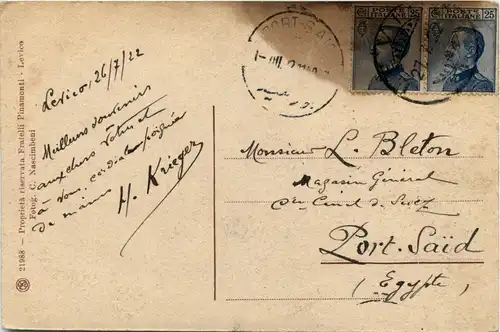 21988 - Proprietà riservata Fratelli Pinamonti - Levico
Fotog. C. Nascimbeni
Levico, 26/7/22
Meilleurs souvenirs
aux chers vôtres et
à vous, cordiale poignée
de mains
H. Krieger
PORT-SAID
POSTE ITALIANE
25
POSTE ITALIANE
25
Monsieur L. Bleton
Magasin Général
Canal de Suez
Port-Saïd
(Egypte)